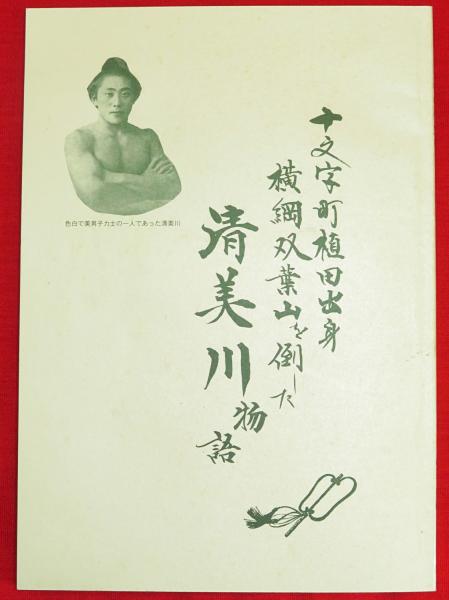 十文字町植田出身
横綱双葉山を倒した
清美川物語
色白で美男子力士の一人であった清美川